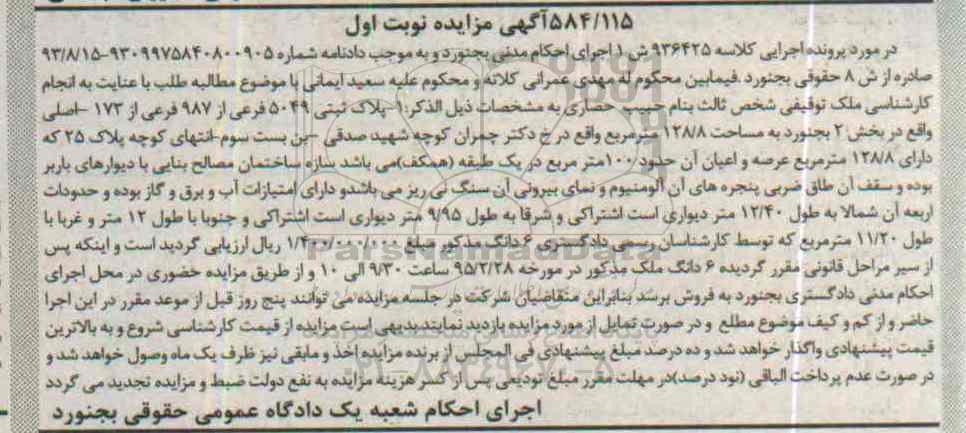 ۵۸۴/۱۱۵آگهی مزایده نوبت اول
در مورد پرونده اجرایی کلاسه ۹۳۶۴۲۵ ش ۱ اجرای احکام مدنی بجنورد و به موجب دادنامه شماره ۹۳۰۹۹۷۵۸۴۰۸۰۰۹۰۵-۹۳/۸/۱۵
صادره از ش ۸ حقوقی بجنورد .فیمابین محکوم له مهدی عمرانی کلاته و محکوم علیه سعید ایمانی با موضوع مطالبه طلب با عنایت به انجام
کارشناسی ملک توقیفی شخص ثالث بنام حبیب حصاری به مشخصات ذیل الذکر:۱-پلاک ثبتی ۵۰۴۹ فرعی از ۹۸۷ فرعی از ۱۷۳ -اصلی
واقع در بخش ۲ بجنورد به مساحت ۱۲۸/۸ مترمربع واقع در خ دکتر چمران کوچه شهید صدقی -بن بست سوم-انتهای کوچه پلاک ۲۵ که
دارای ۱۲۸/۸ مترمربع عرصه و اعیان آن حدود ۱۰۰متر مربع در یک طبقه (همکف)می باشد سازه ساختمان مصالح بنایی با دیوارهای باربر
بوده و سقف آن طاق ضربی پنجره های آن آلومنیوم و نمای بیرونی آن سنگ نی ریز می باشدو دارای امتیازات آب و برق و گاز بوده و حدودات
اربعه آن شمالا به طول ۱۲/۴۰ متر دیواری است اشتراکی و شرقا به طول ۹/۹۵ متر دیواری است اشتراکی و جنوبا با طول ۱۲ متر و غربا با
طول ۱۱/۲۰ مترمربع که توسط کارشناسان رسمی دادگستری ۶ دانگ مذکور مبلغ ۱/۴۰۰/۰۰۰/۰۰۰ ریال ارزیابی گردید است و اینکه پس
از سیر مراحل قانونی مقرر گردیده ۶ دانگ ملک مذکور در مورخه ۹۵/۲/۲۸ ساعت ۹/۳۰ الی ۱۰ و از طریق مزایده حضوری در محل اجرای
احکام مدنی دادگستری بجنورد به فروش برسد بنابراین متقاضیان شرکت در جلسه مزایده می توانند پنج روز قبل از موعد مقرر در این اجرا
حاضر و از کم و کیف موضوع مطلع و در صورت تمایل از مورد مزایده بازدید نمایند بدیهی است مزایده از قیمت کارشناسی شروع و به بالاترین
قیمت پیشنهادی واگذار خواهد شد و ده درصد مبلغ پیشنهادی فی المجلس از برنده مزایده اخذ و مابقی نیز ظرف یک ماه وصول خواهد شد و
در صورت عدم پرداخت الباقی (نود درصد)در مهلت مقرر مبلغ تودیعی پس از کسر هزینه مزایده به نفع دولت ضبط و مزایده تجدید می گردد
اجرای احکام شعبه یک دادگاه عمومی حقوقی بجنورد
ParsNamadData